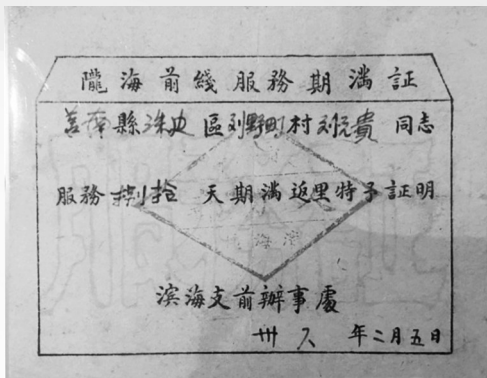 隴海前綫服務期滿証
莒南縣洙边區刘野町村刘贵 同志
服務捌拾 天期滿返里特予証明
滨海支前辦事處
卅八 年二月五日